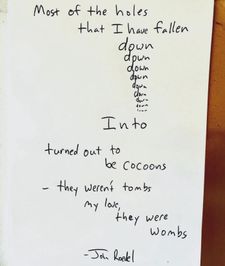 Most of the holes
that I have fallen
down
down
down
down
down
down
down
down
Into
turned out to
be cocoons
- they weren't tombs
my love,
they were
wombs
- John Roedel